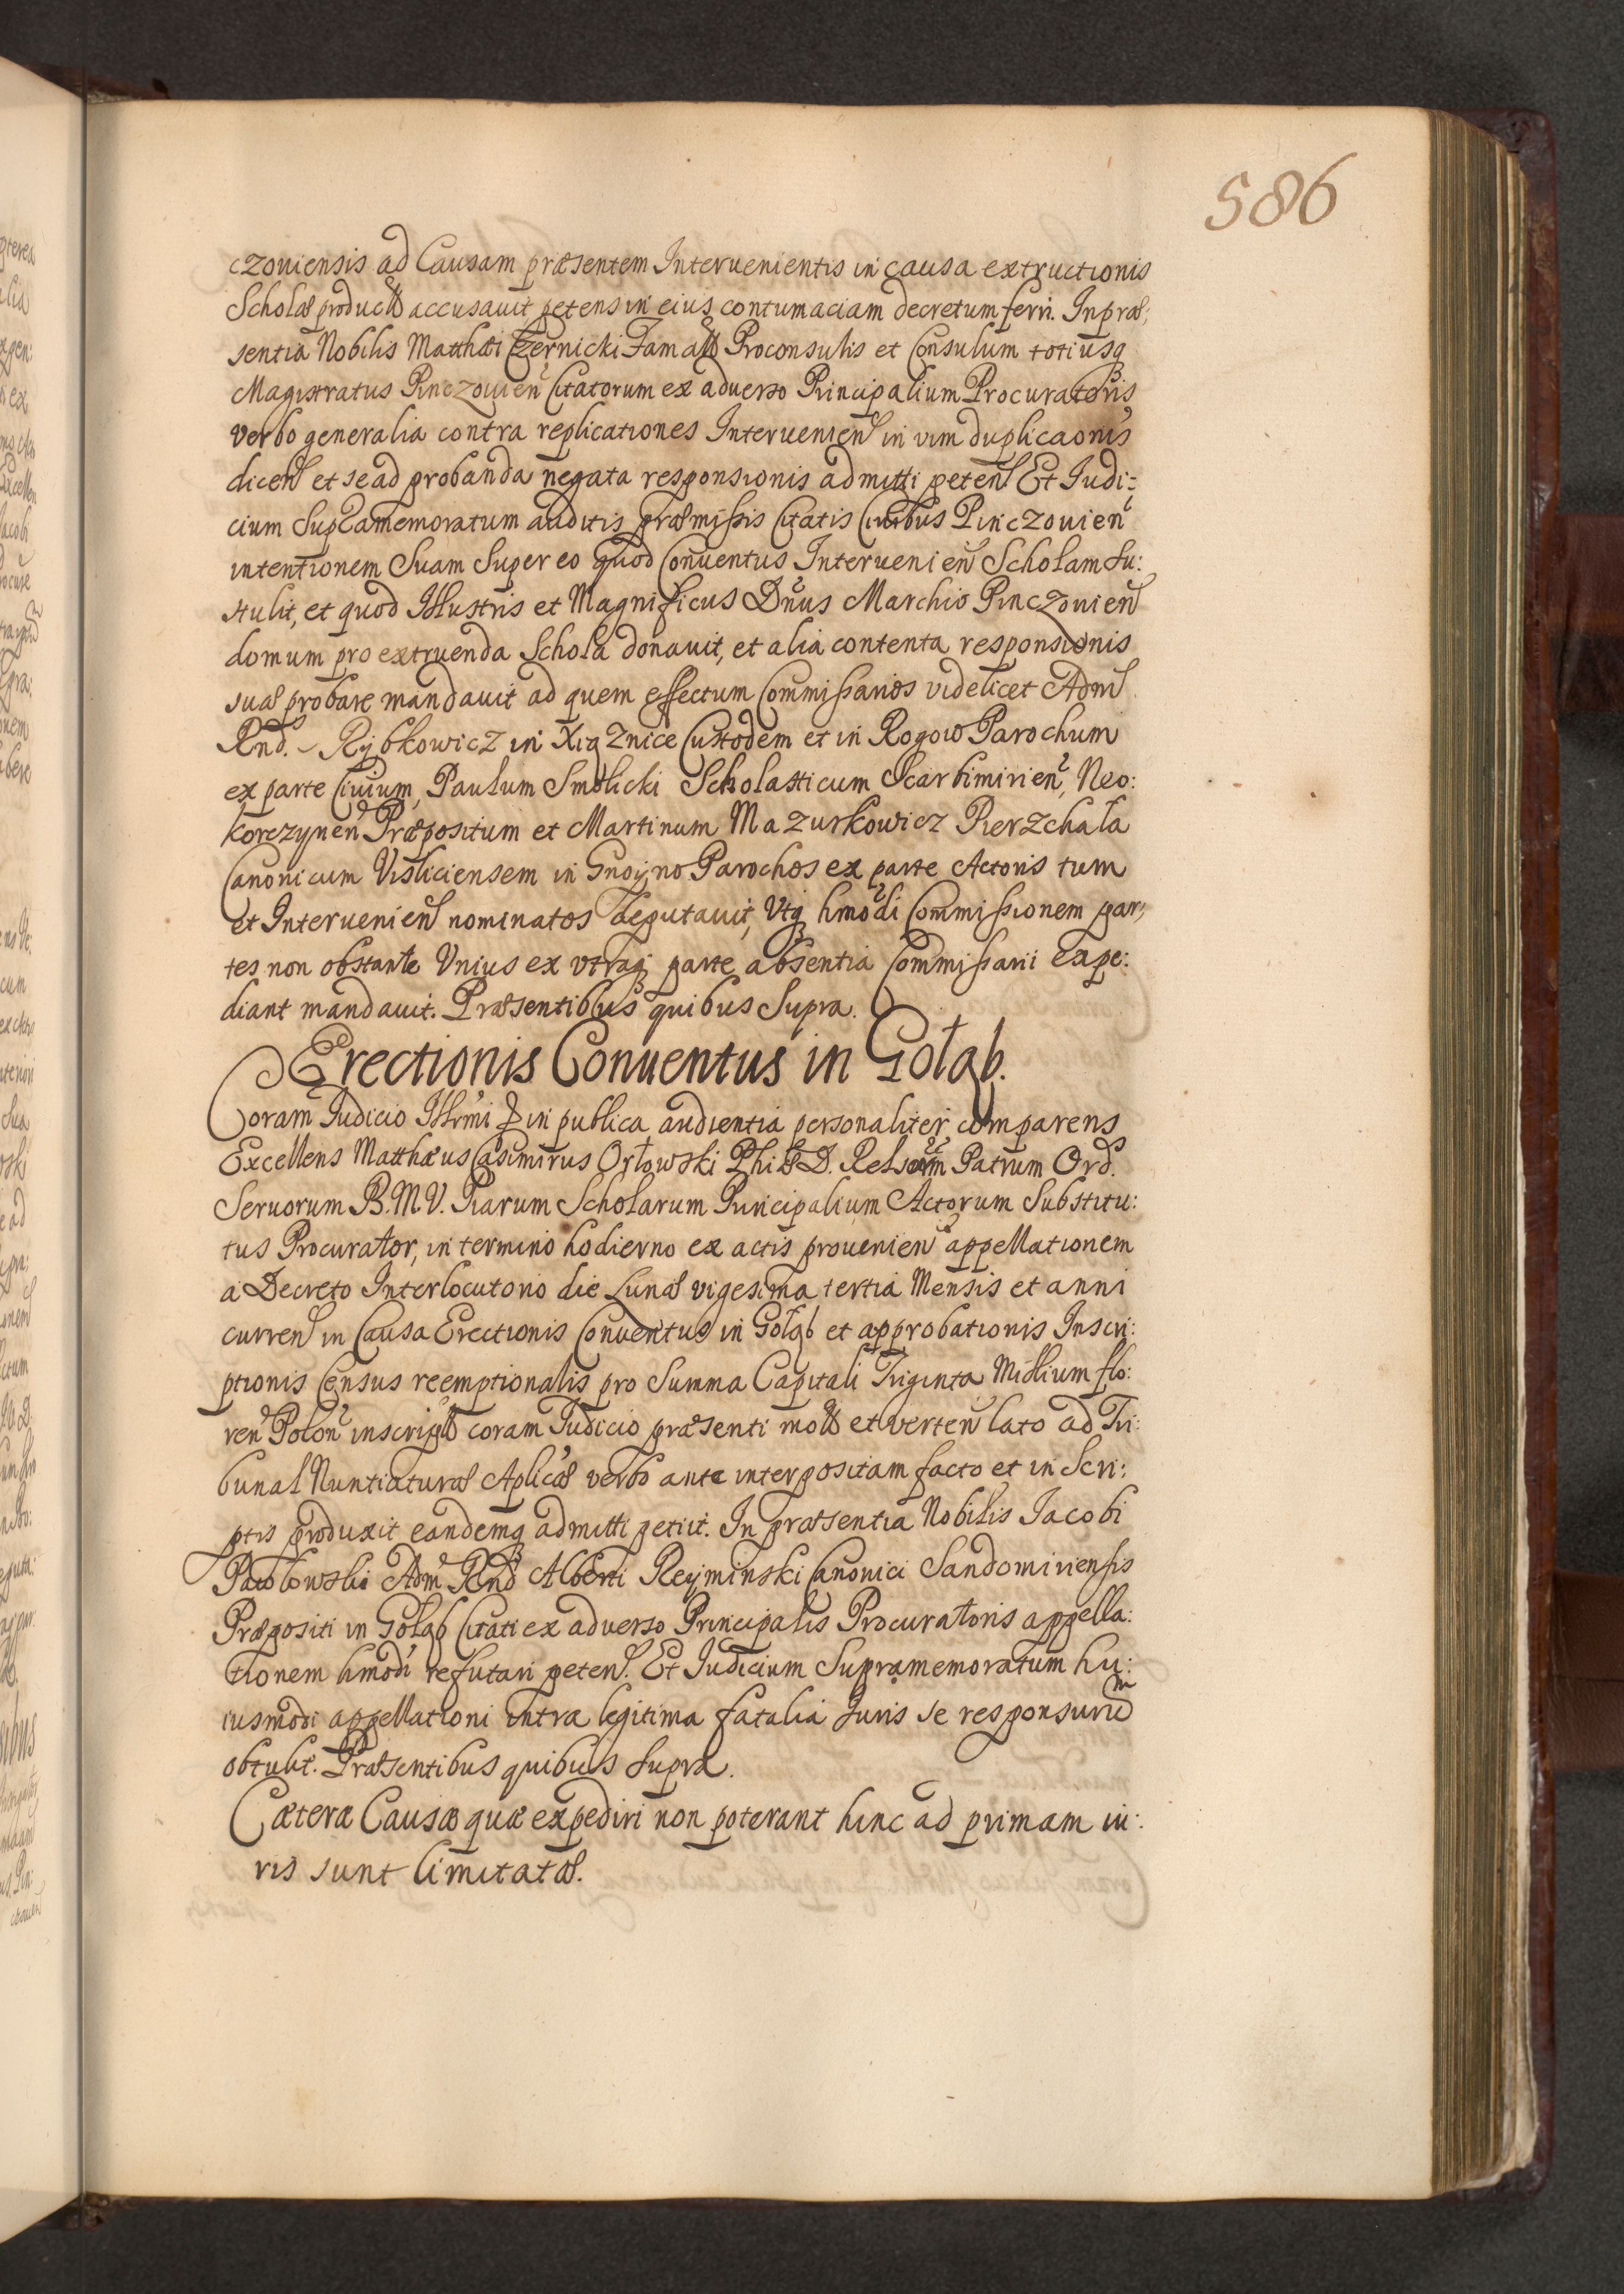 586
czouiensis ad Causam præsentem Interuenientis in causa extructionis
Scholæ product accusauit petens in eius contumaciam decretum ferri. In præ:
sentia Nobilis Matthæi Czernicki Famat Proconsulis et Consulum totiusq
Magistratus Pinczouien Citatorum ex aduerso Principalium Procuratoris
verbo generalia contra replicationes Interuenien in vim duplicaonis
dicen et se ad probanda negata responsionis admitti peten Et Iudi:
cium Supramemoratum auditis præmissis Citatis Ciuibus Pinczouien
intentionem Suam Super eo quod Conuentus Interuenien Scholam Su:
stulit, et quod Illustris et Magnificus Dnus Marchio Pinczouien
domum pro extruenda Schola donauit, et alia contenta responsionis
suæ probare mandauit ad quem effectum Commissarios videlicet Adm
Rnd. Rybkowicz in Xiąznice Custodem et in Rogow Parochum
ex parte Ciuium, Paulum Smolicki Scholasticum Scarbimirien, Neo:
korczynen Præpositum et Martinum Mazurkowicz Pierzchała
Canonicum Visliciensem in Gnoyno Parochos ex parte Actoris tum
et Interuenien nominatos deputauit, Vtq hmodi Commissionem par:
tes non obstante Vnius ex vtraq parte absentia Commissarii expe:
diant mandauit. Præsentibus quibus Supra.
Erectionis Conuentus in Gołąb.
Coram Iudicio Illrmi & in publica audientia personaliter comparens
Excellens Matthæus Casimirus Orłowski Phi D. Relsorum Patrum Ord.
Seruorum B. M. V. Piarum Scholarum Principalium Actorum Substitu:
tus Procurator, in termino hodierno ex actis prouenien appellationem
a Decreto Interlocutorio die Lunæ vigesima tertia Mensis et anni
curren in Causa Erectionis Conuentus in Gołąb et approbationis Inscri:
ptionis Census reemptionalis pro Summa Capitali Triginta Millium flo:
ren Polon inscript coram Iudicio præsenti mot et verten lato ad Tri:
bunal Nuntiaturæ Aplicæ verbo ante interpositam facto et in Scri:
ptis produxit eandemq admitti petiit. In præsentia Nobilis Iacobi
Pawłowski Adm Rnd Alberti Reyminski Canonici Sandomiriensis
Præpositi in Gołąb Citati ex aduerso Principalis Procuratoris appella:
tionem hmodi refutari peten. Et Iudicium Supramemoratum hu:
iusmodi appellationi intra legitima fatalia Iuris se responsurum
obtulit. Præsentibus quibus Supra.
Cæteræ Causæ quæ expediri non poterant hinc ad primam iu:
ris sunt limitatæ.